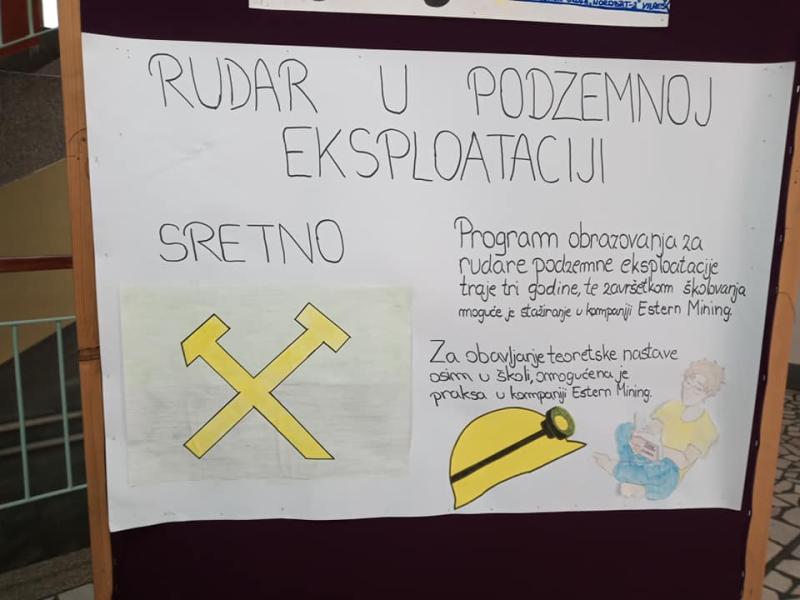 RUDAR U PODZEMNOJ
EKSPLOATACIJI
SRETNO
Program obrazovanja za
rudare podzemne eksploatacije
traje tri godine, te završetkom školovanja
moguće je stažiranje u kompaniji Estern Mining.
Za obavljanje teoretske nastave
osim u školi, omogućena je
praksa u kompaniji Estern Mining.